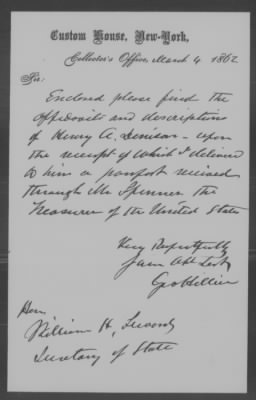 Custom House, New-York,
Collector's Office, March 4 1862
Sir:
Enclosed please find the
Affidavits and descriptions
of Henry A. Denison - upon
the receipt of which I delivered
to him a passport received
through Mr Spinner the
Treasurer of the United State
Very Respectfully
Your Obt Svt
Hon
William H, Seward
Secretary of State